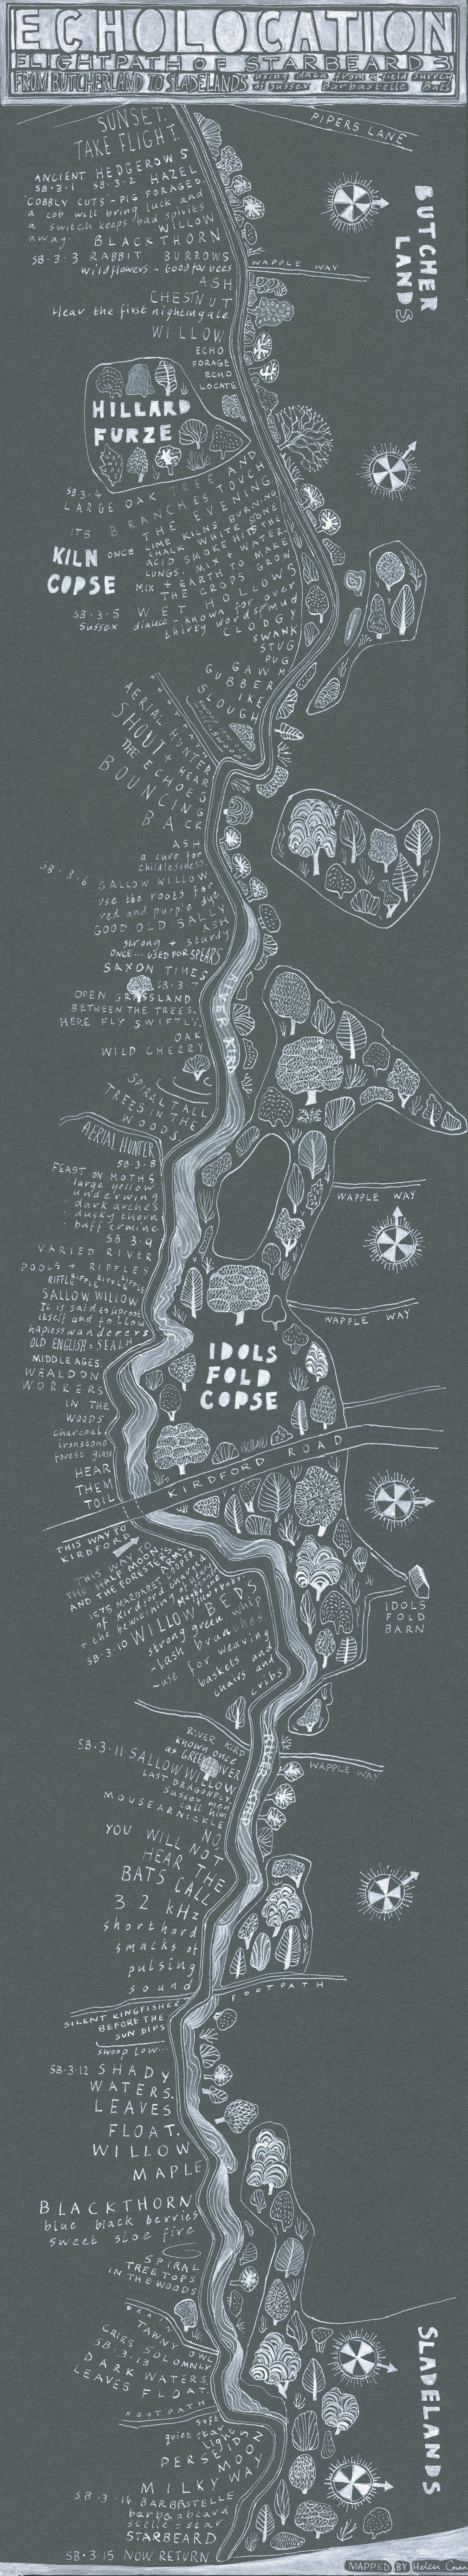 ECHOLOCATION
FLIGHTPATH OF STARBEARD 3
FROM BUTCHERLAND TO SLADELANDS using data from a field survey
of Sussex Barbastelle Bats
PIPERS LANE
SUNSET.
TAKE FLIGHT.
BUTCHER
LANDS
ANCIENT HEDGEROWS
SB·3·1 SB·3·2 HAZEL
'COBBLY CUTS'-PIG FORAGED.
a cob will bring luck and
a switch keeps bad spirits
away. WILLOW
BLACKTHORN
SB·3·3 RABBIT BURROWS
wildflowers - Good for bees
WAPPLE WAY
ASH
CHESTNUT
Hear the first nightingale
WILLOW
ECHO
FORAGE
ECHO
LOCATE
HILLARD
FURZE
SB·3·4
LARGE OAK TREE AND
ITS BRANCHES TOUCH
THE EVENING
KILN
COPSE
ONCE LIME KILNS BURNING
CHALK WHITE STONE
ACID SMOKE HITS THE
LUNGS. MIX + WATER
MIX + EARTH TO MAKE
THE CROPS GROW
SB·3·5 WET HOLLOWS
Sussex dialect - known for over
thirty words for mud
CLODGY
SWANK
STUG
PUG
GAWM
GUBBER
IKE
SLOUGH
FOOTPATH
AERIAL HUNTER
SHOUT + HEAR
THE ECHOES
BOUNCING
BACK
ASH
a cure for
childlessness
SB·3·6 SALLOW WILLOW
use the roots for
red and purple dye
GOOD OLD SALLY
ASH
strong + sturdy
ONCE... USED FOR SPEARS
SAXON TIMES
SB·3·7
OPEN GRASSLAND
BETWEEN THE TREES.
HERE FLY SWIFTLY.
OAK
WILD CHERRY
RIVER KIRD
SPIRAL TALL
TREES IN THE
WOODS.
AERIAL HUNTER
SB·3·8
FEAST ON MOTHS
large yellow
underwing
· dark arches
· dusky thorn
· buff ermine
SB 3·9
VARIED RIVER
POOLS + RIFFLES
RIFFLE RIPPLE RIFFLE RIPPLE
SALLOW WILLOW
It is said to uproot
itself and follow
hapless wanderers
OLD ENGLISH = SEALH
WAPPLE WAY
WAPPLE WAY
IDOLS
FOLD
COPSE
MIDDLE AGES.
WEALDON
WORKERS
IN THE
WOODS
charcoal
ironstone
forest glass
HEAR
THEM
TOIL
KIRDFORD ROAD
THIS WAY TO
KIRDFORD
THIS WAY TO
THE HALF MOON,
AND THE FORESTERS ARMS
1575 MARGARET COOPER
of Kirdford charged
+ the bewitching of
SB·3·10 WILLOW BEDS
strong green whip
-lash branches
~use for weaving
baskets and
chairs and
cribs
IDOLS
FOLD
BARN
RIVER KIRD
known once
as GREEN RIVER
SB·3·11 SALLOW WILLOW
LAST DRAGONFLY.
Sussex men
call him
MOUSEARNICKLE
RIVER KIRD
WAPPLE WAY
NO
YOU WILL NOT
HEAR THE
BATS CALL
32 kHz
short hard
smacks of
pulsing
sound
FOOTPATH
SILENT KINGFISHER
BEFORE THE
SUN DIPS
swoop low...
SB·3·12 SHADY
WATERS.
LEAVES
FLOAT.
WILLOW
MAPLE
BLACKTHORN
blue black berries
sweet sloe fire
SPIRAL
TREE TOPS
IN THE WOODS
DRAIN
TAWNY OWL
CRIES SOLOMNLY
SB·3·13
DARK WATERS
LEAVES FLOAT.
FOOTPATH
soft
quiet star
light
PERSEIDS
MOON
MILKY WAY
SLADELANDS
SB·3·14 BARBASTELLE
barba = beard
stelle = star
STARBEARD
SB·3·15 NOW RETURN
MAPPED BY Helen